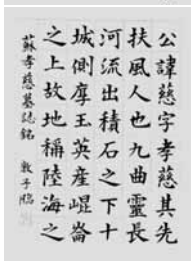 公諱慈字孝慈其先
扶風人也九曲靈長
河流出積石之下十
城側厚玉英產崐崙
之上故地稱陸海之
蘇孝慈墓誌銘 敦子臨